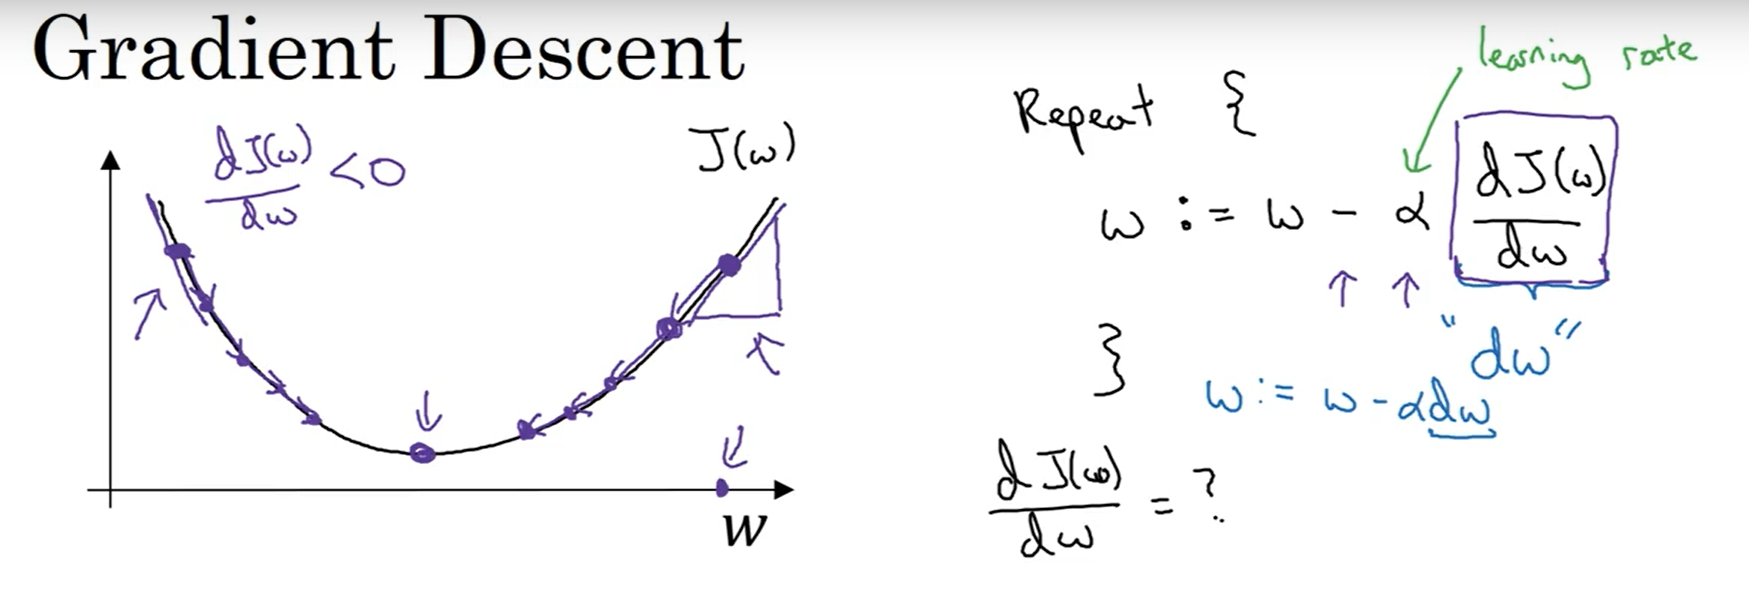 Gradient Descent
dJ(w)/dw < 0
J(w)
w
learning rate
Repeat {
w := w - α dJ(w)/dw
"dw"
}
w := w - αdw
dJ(w)/dw = ?